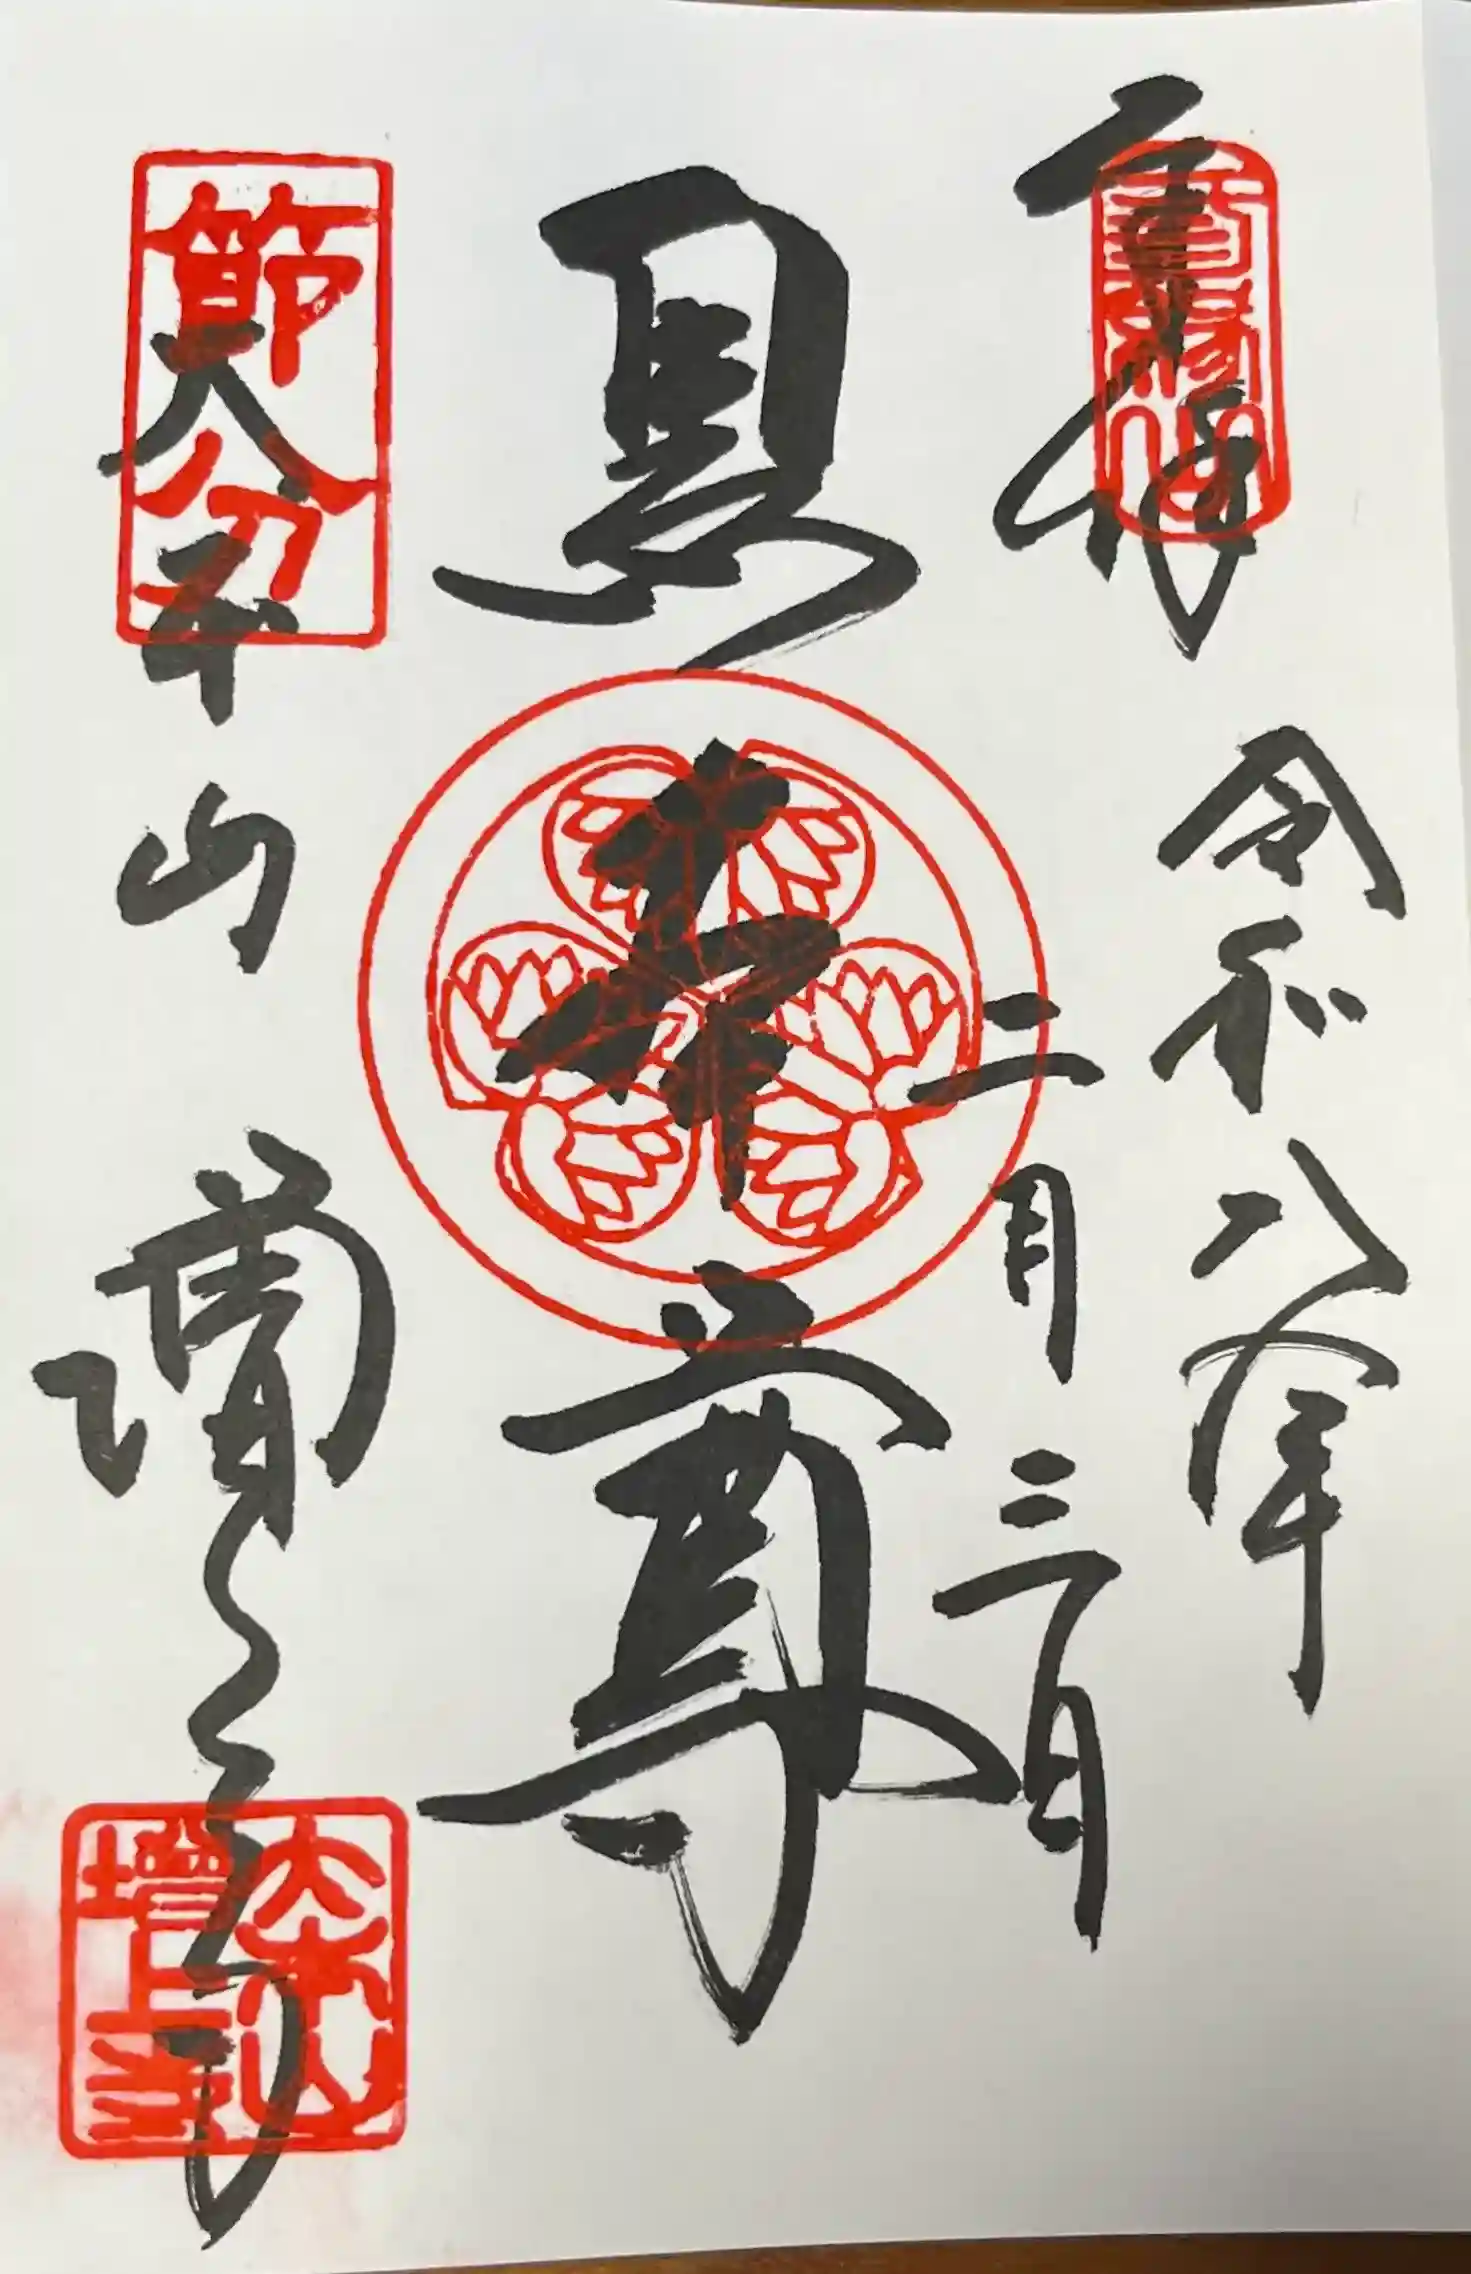 奉拝
令和八年
二月三日
黒本尊
大本山
増上寺
節分
大本山
増上寺